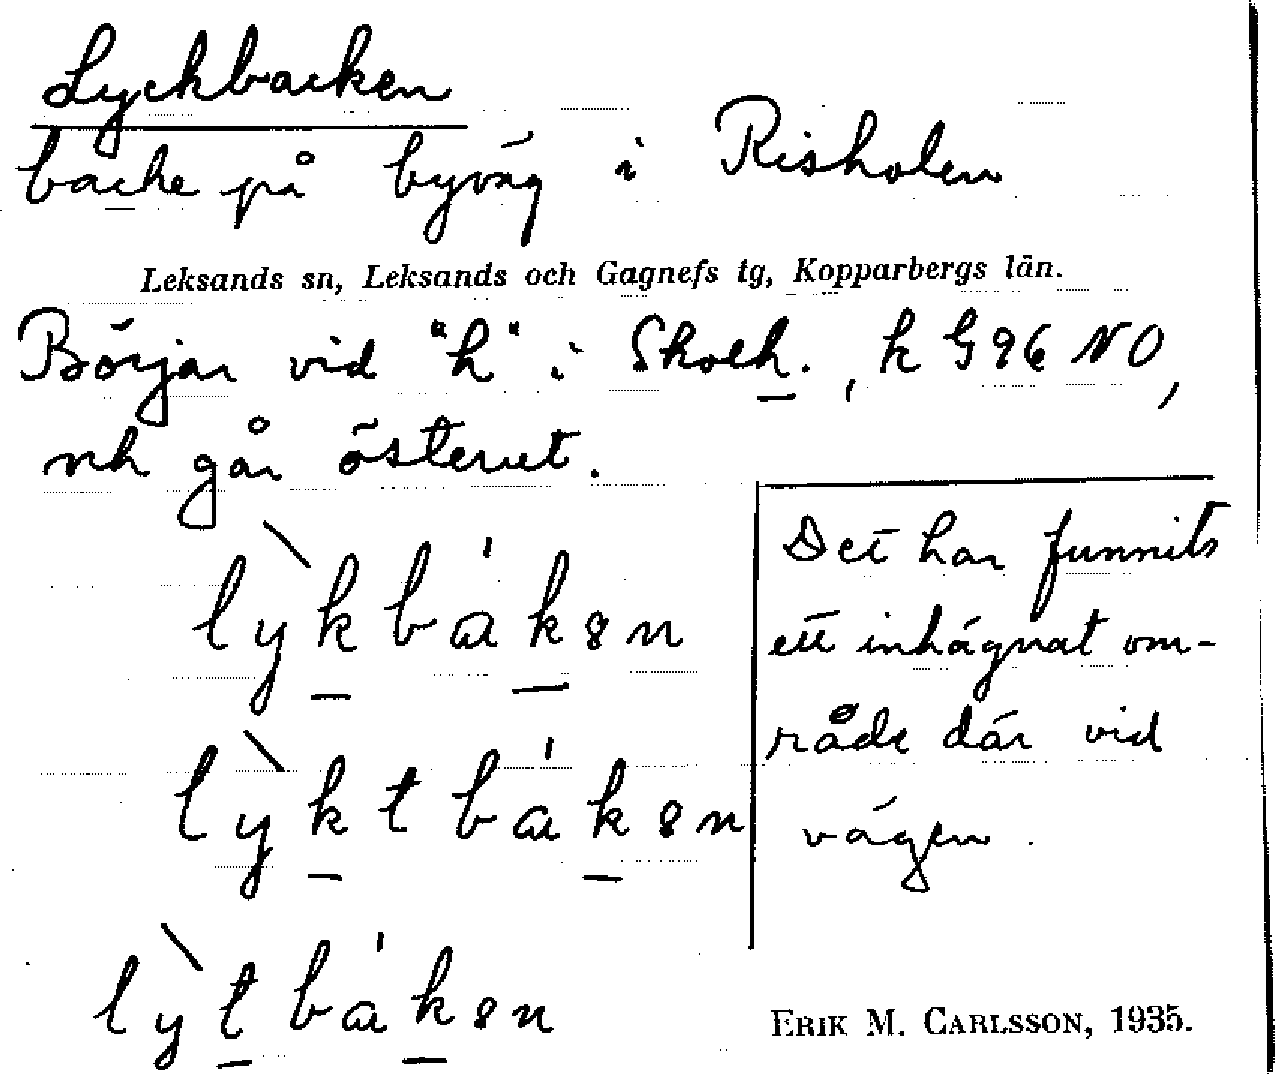 Lyckbacken
backe på byväg i Risholen
Leksands sn, Leksands och Gagnefs tg, Kopparbergs län.
Börjar vid "h" i Skolh., k G 96 NO,
o̱ch går österut.
lỳk̲bàk̲ən
lỳk̲tbàk̲ən
lỳt̲bàk̲ən
Det har funnits
ett inhägnat om-
råde där vid
vägen.
ERIK M. CARLSSON, 1935.